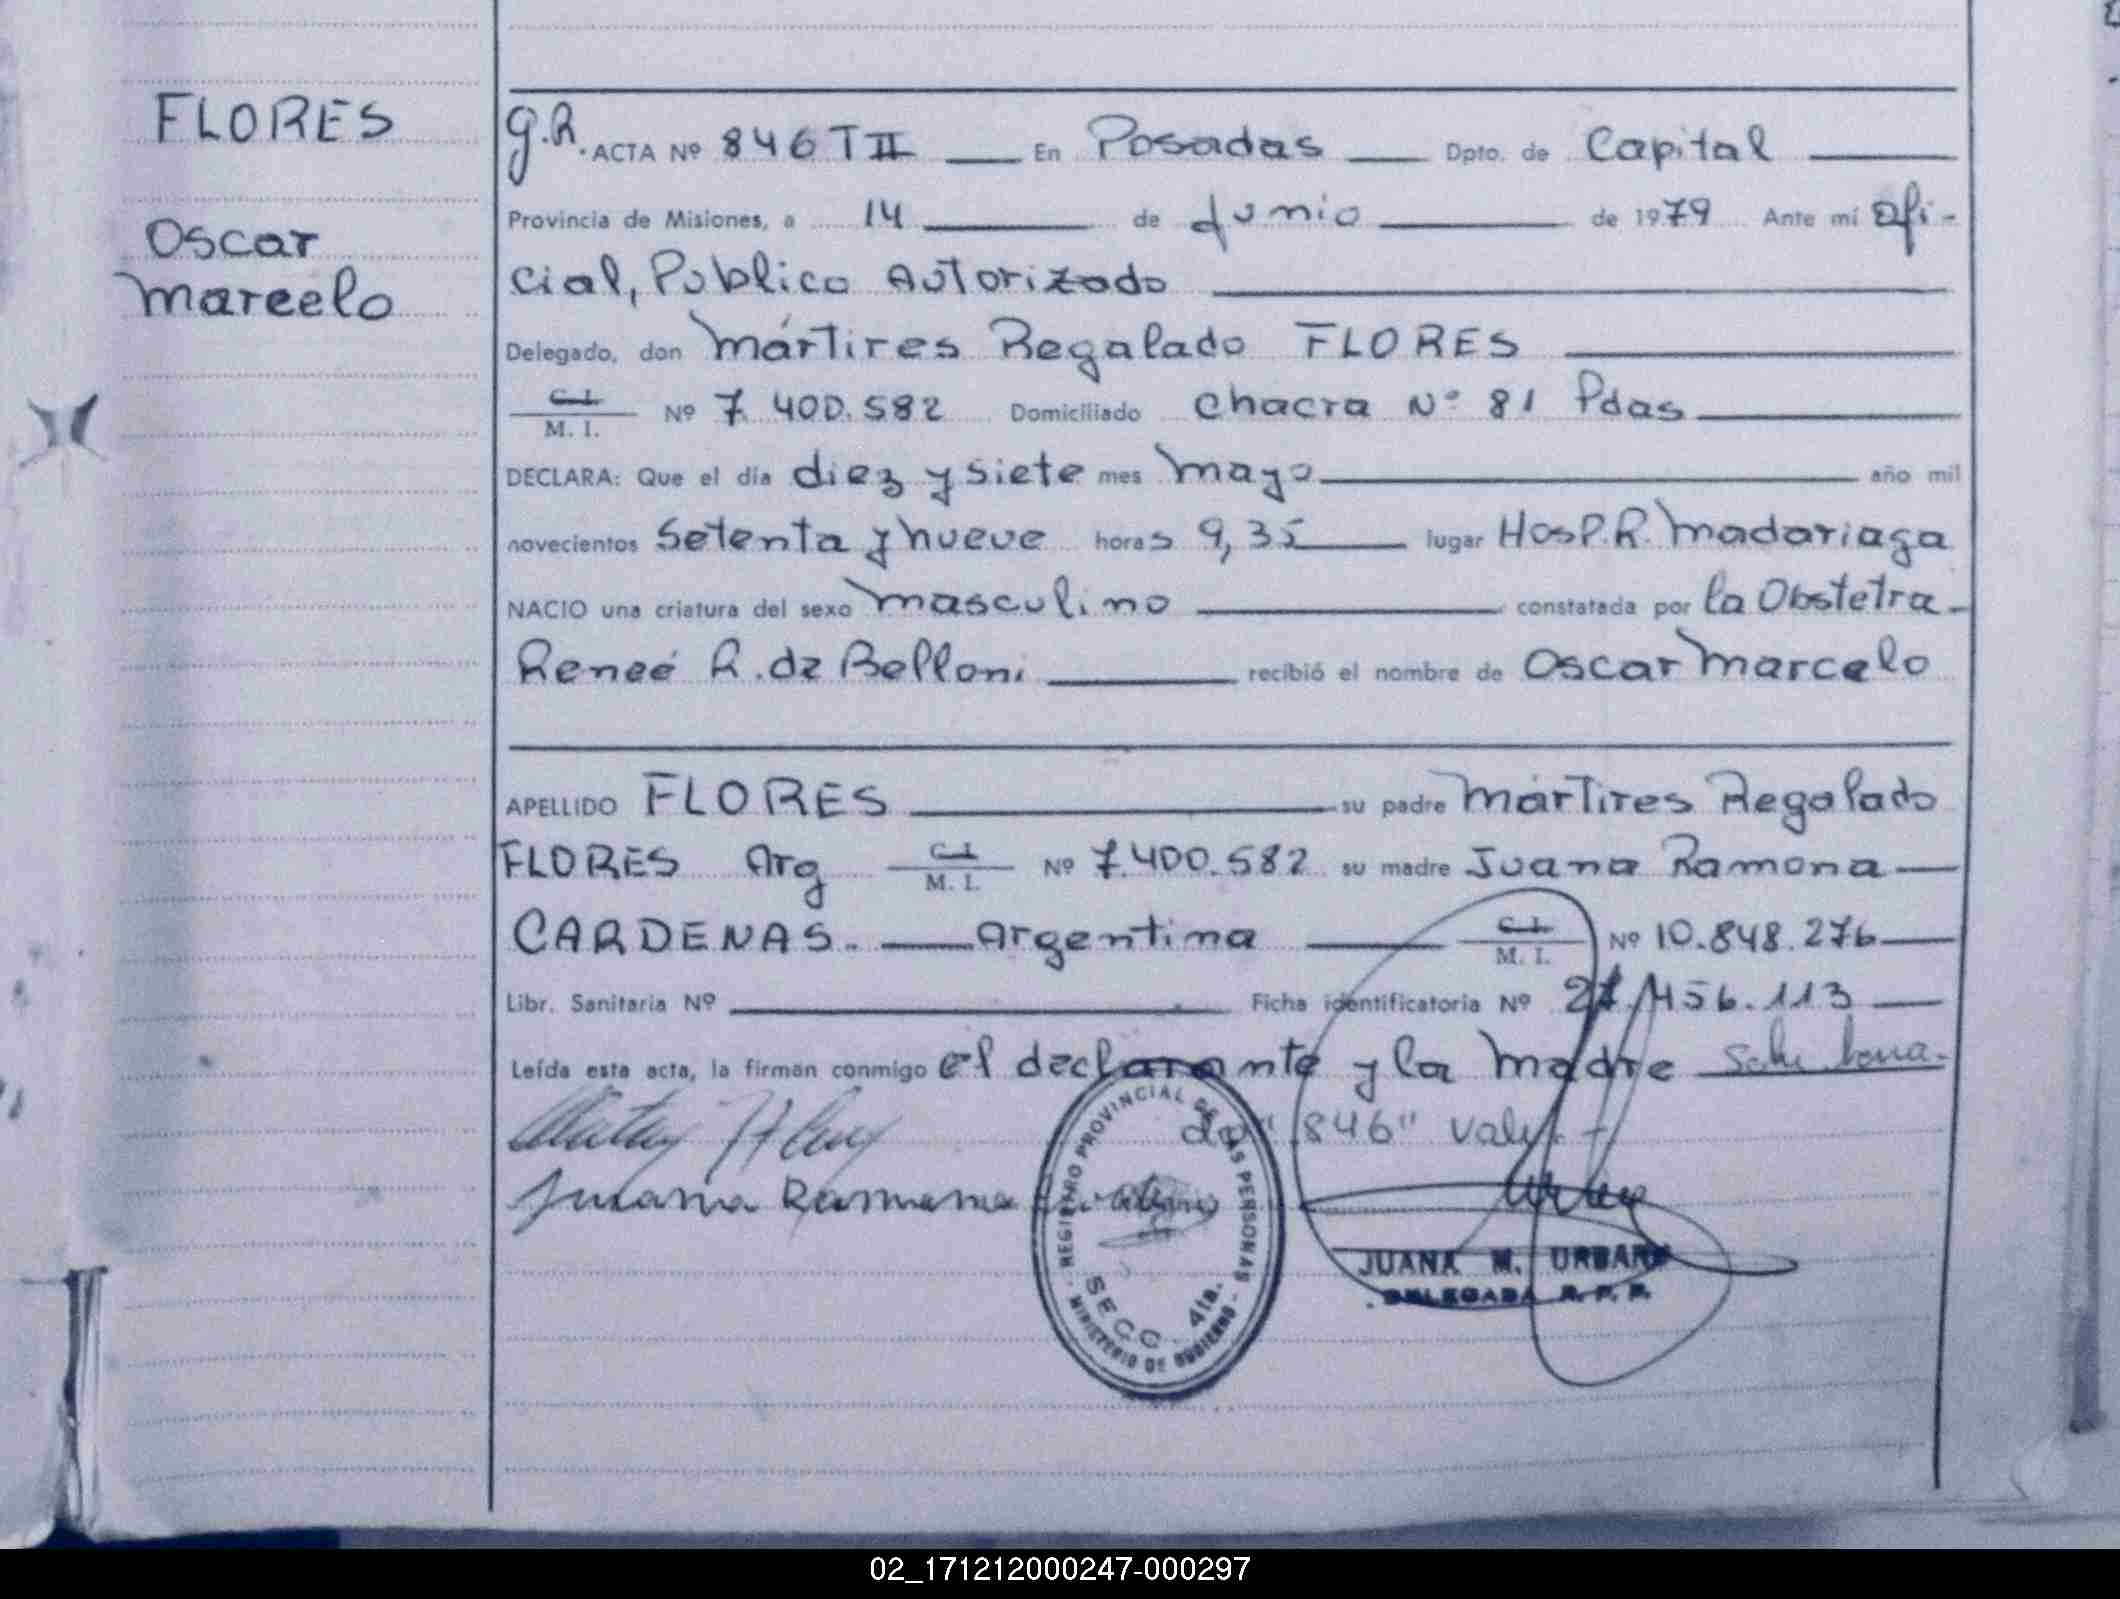 FLORES
Oscar
Marcelo
G.R. ACTA Nº 846 T II En Posadas Dpto. de Capital
Provincia de Misiones, a 14 de Junio de 1979 Ante mí Ofi-
cial, Publico Autorizado
Delegado, don Mártires Regalado FLORES
C.I. M. I. Nº 7.400.582 Domiciliado Chacra Nº 81 Pdas
DECLARA: Que el día diez y siete mes Mayo año mil
novecientos Setenta y nueve horas 9,35 lugar Hosp. R. Madariaga
NACIO una criatura del sexo Masculino constatada por la Obstetra
Reneé R. de Belloni recibió el nombre de Oscar Marcelo
APELLIDO FLORES su padre Mártires Regalado
FLORES Arg C.I. M. I. Nº 7.400.582 su madre Juana Ramona
CARDENAS. Argentina C.I. M. I. Nº 10.848.276
Libr. Sanitaria Nº Ficha identificatoria Nº 27.456.113
Leída esta acta, la firman conmigo el declarante y la Madre
"846" Vale
Juana Ramona
REGISTRO PROVINCIAL DE LAS PERSONAS
SECC. 4ta.
MINISTERIO DE GOBIERNO
JUANA M. URBANO
DELEGADA R. P. P.
02_171212000247-000297